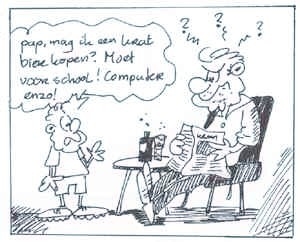 pap, mag ik een krat
bier kopen? Moet
voor school! Computer
enzo!
? ? ?